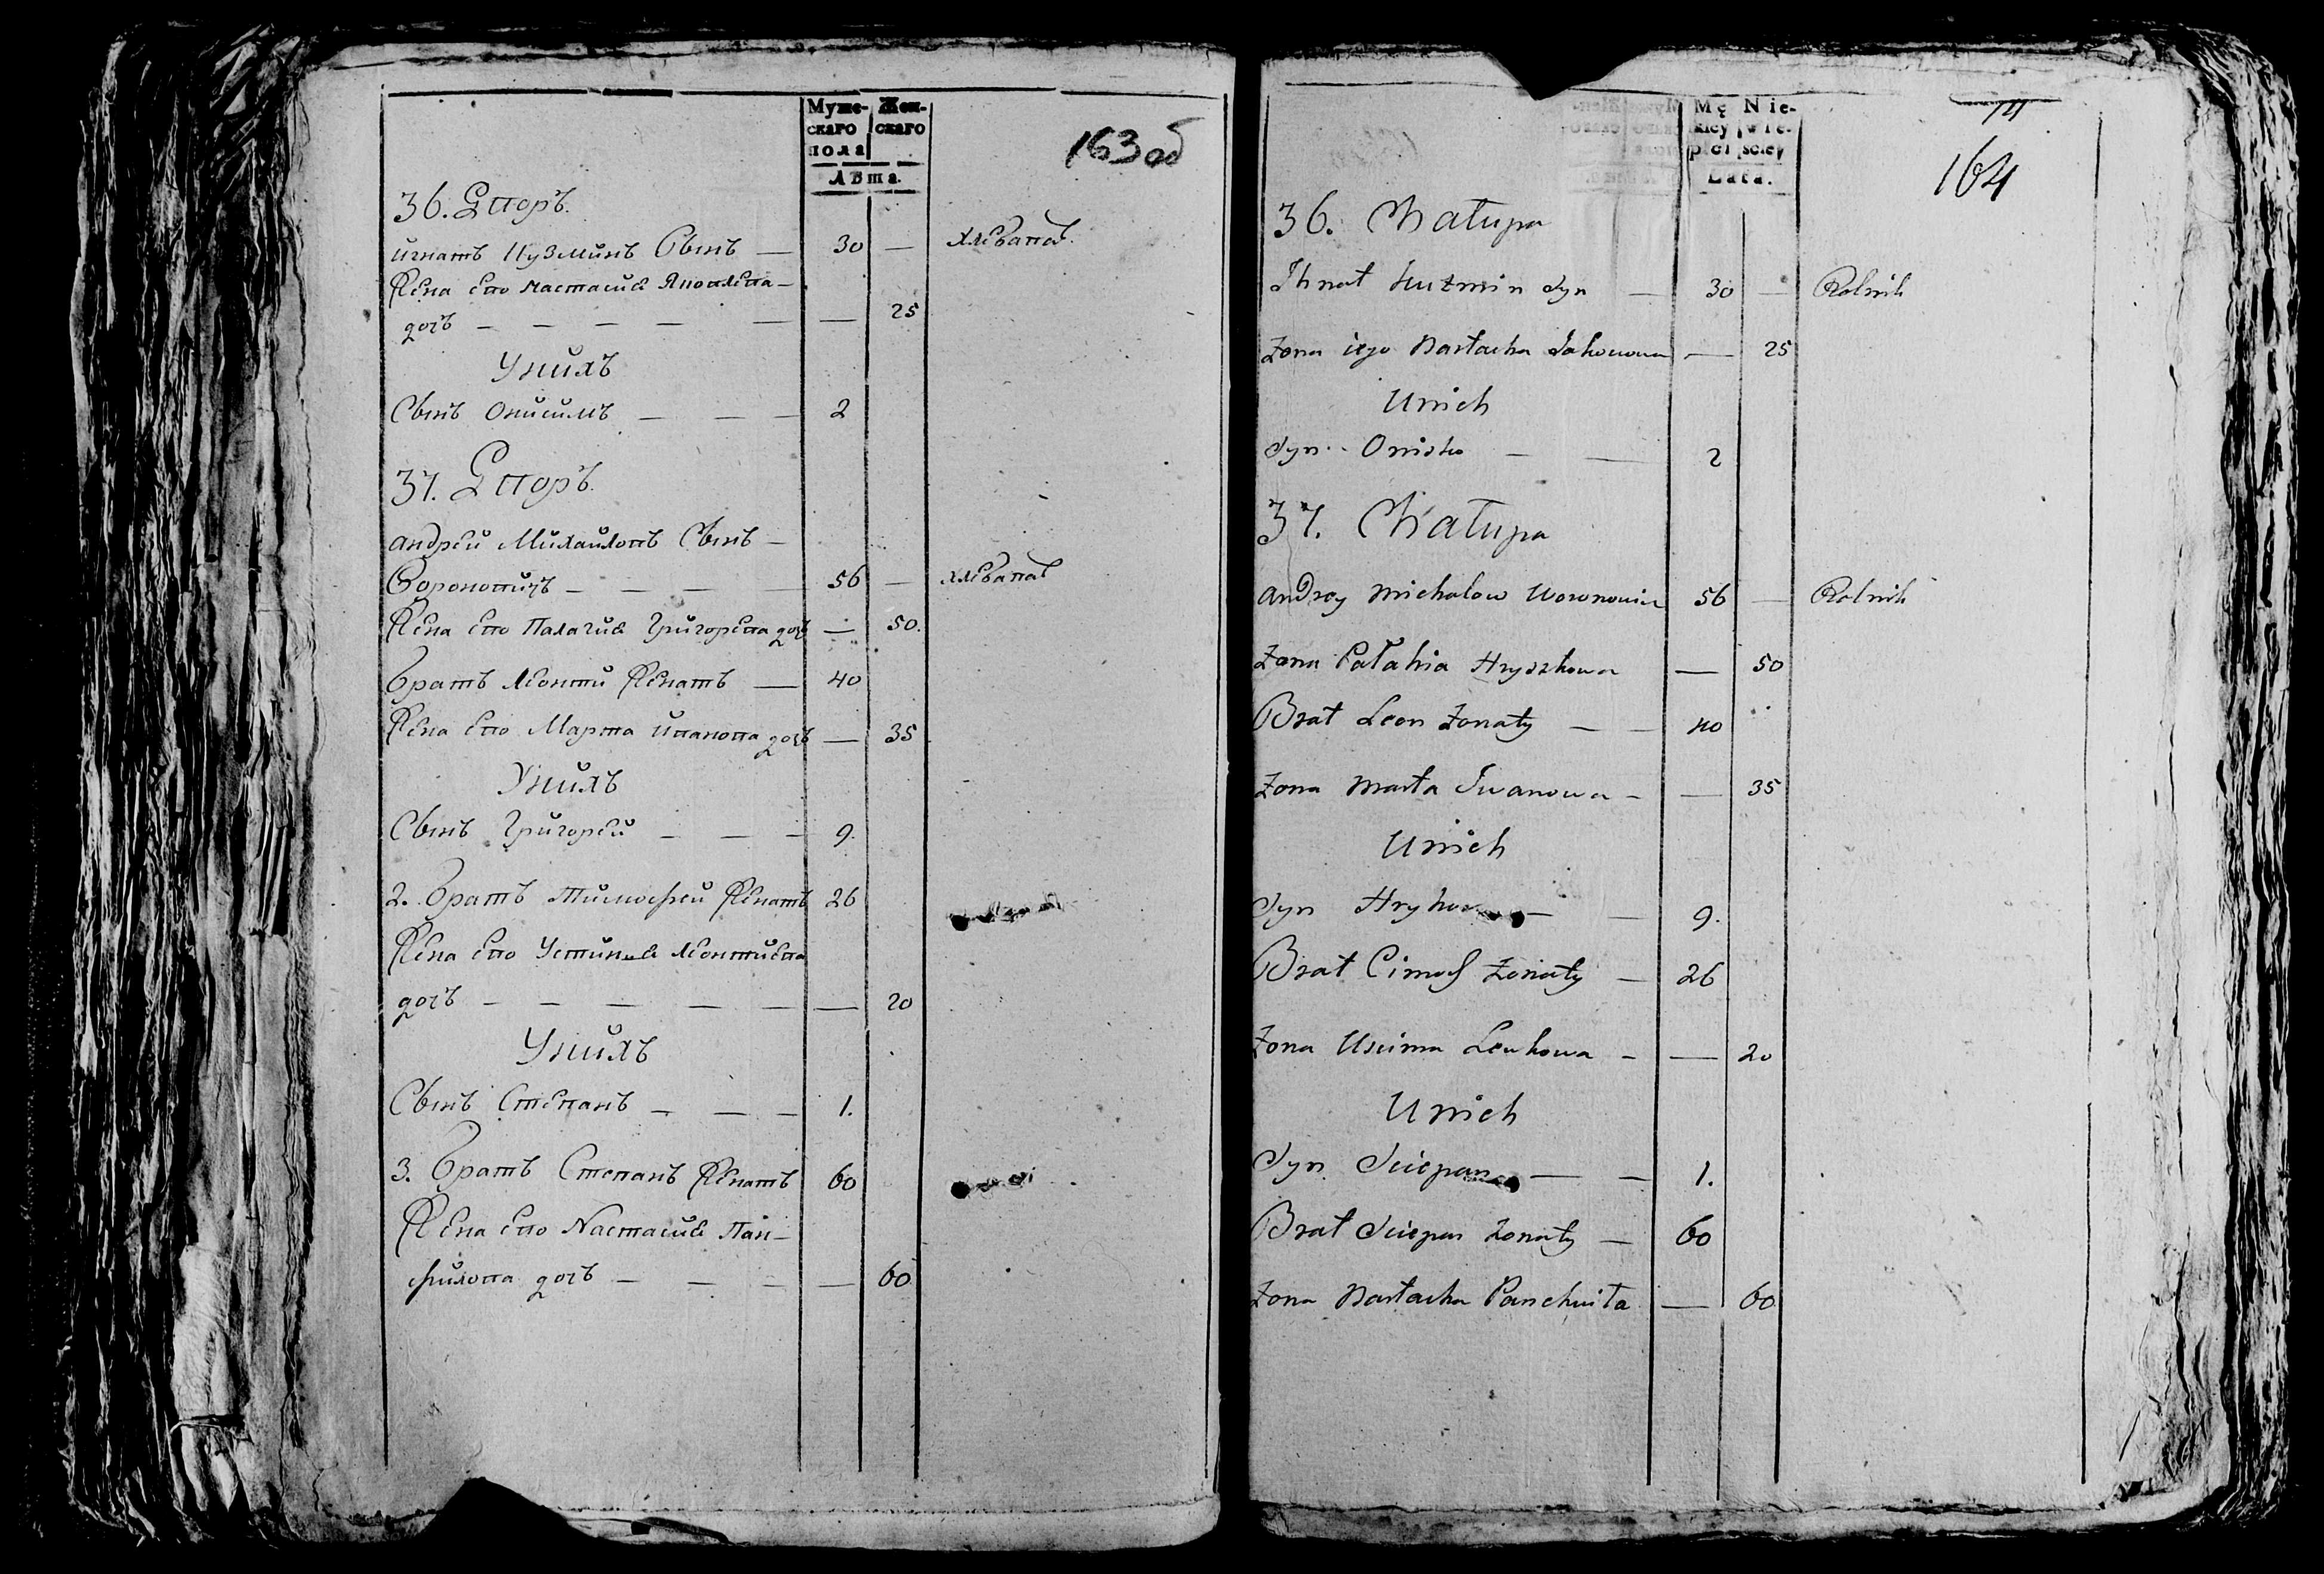 Муже-
скаго
пола
Жен-
скаго
Лѣта.
163 об
36. Дворъ.
Игнатъ Кузминъ Сынъ — 30 —
Жена Его Настасия Яковлева —
дочь — — — — — — 25
У нихъ
Сынъ Онисимъ — — — 2
37. Дворъ.
Андрей Михайловъ Сынъ —
Вороновичъ — — — — 56 —
Жена Его Палагия Григорева дочь — 50.
братъ Леонти Женатъ — 40
Жена Его Марта Иванова дочь — 35
У нихъ
Сынъ Григорей — — — 9.
2. братъ Тимофей Женатъ 26
Жена Его Устиния Леонтиева
дочь — — — — — — 20
У нихъ
Сынъ Степанъ — — — 1.
3. братъ Степанъ Женатъ 60
Жена Его Настасия Пан-
филова дочь — — — — 60
Mę
skiey
płci
Nie-
wie-
sciey
Lata.
164
36. Chałupa
Ihnat Kuzmin syn — 30 — Rolnik
Zona iego Nastacha Jakowowa — 25
U nich
Syn Onisko — — 2
37. Chałupa
Andrey Michałow Woronowicz 56 — Rolnik
Zona Pałahia Hryszkowa — 50
Brat Leon Zonaty — — 40
Zona Marta Iwanowa — — 35
U nich
Syn — — 9.
Brat Cimof Zonaty — 26
Zona Uscima Leukowa — — 20
U nich
Syn Sciepan — — 1.
Brat Sciepan Zonaty — 60
Zona Nastacha Panchwiła — 60